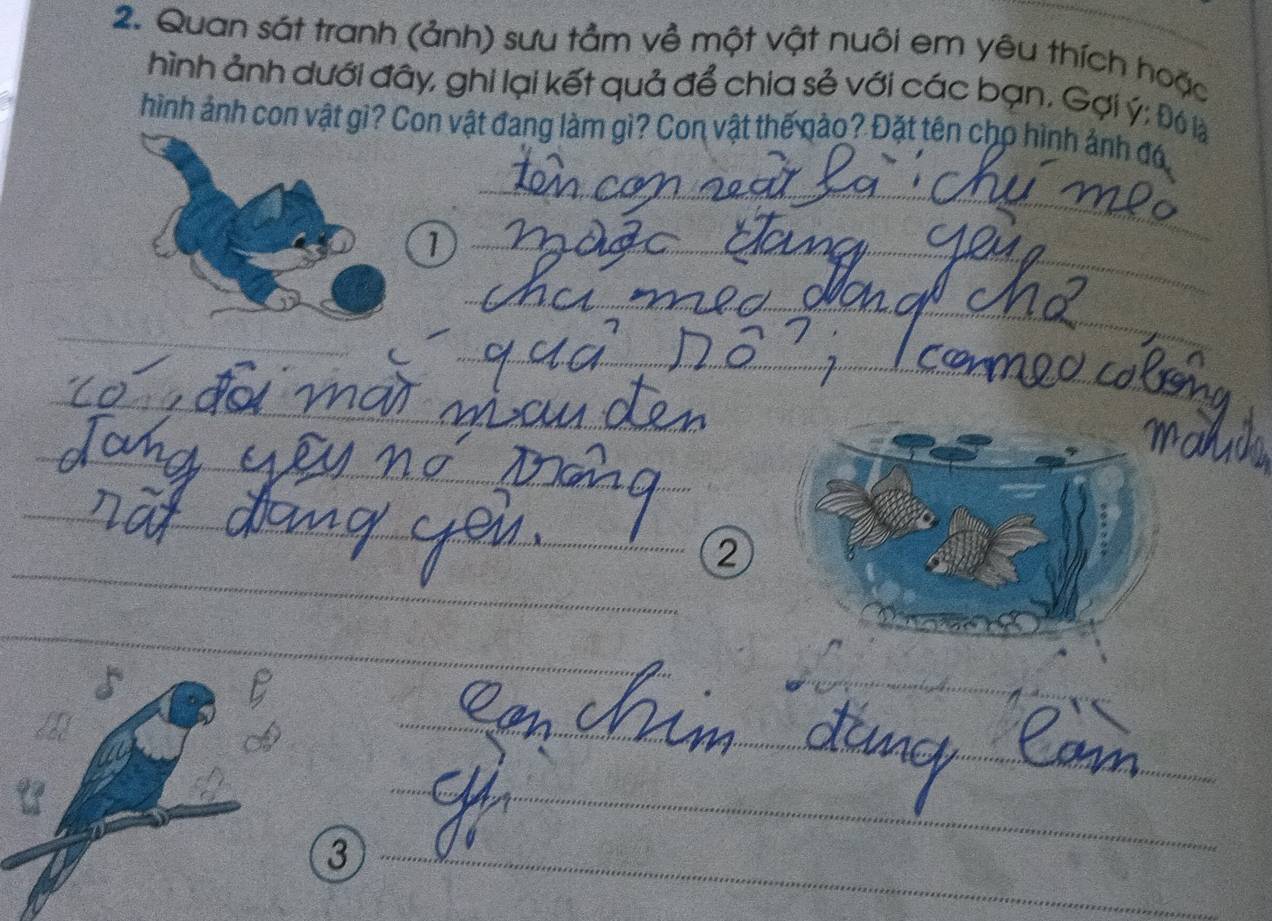 2. Quan sát tranh (ảnh) sưu tầm về một vật nuôi em yêu thích hoặc
hình ảnh dưới đây, ghi lại kết quả để chia sẻ với các bạn. Gợi ý: Đó là
hình ảnh con vật gì? Con vật đang làm gì? Con vật thế nào? Đặt tên cho hình ảnh đó.
tên con là chú mèo
1
đang yêu
chú mèo đang chơ
quả nô; con mèo có lông
có đôi mắt màu đen
màu đen
đang yêu nó trông
rất đang yêu.
2
con chim đang làm
gì
3